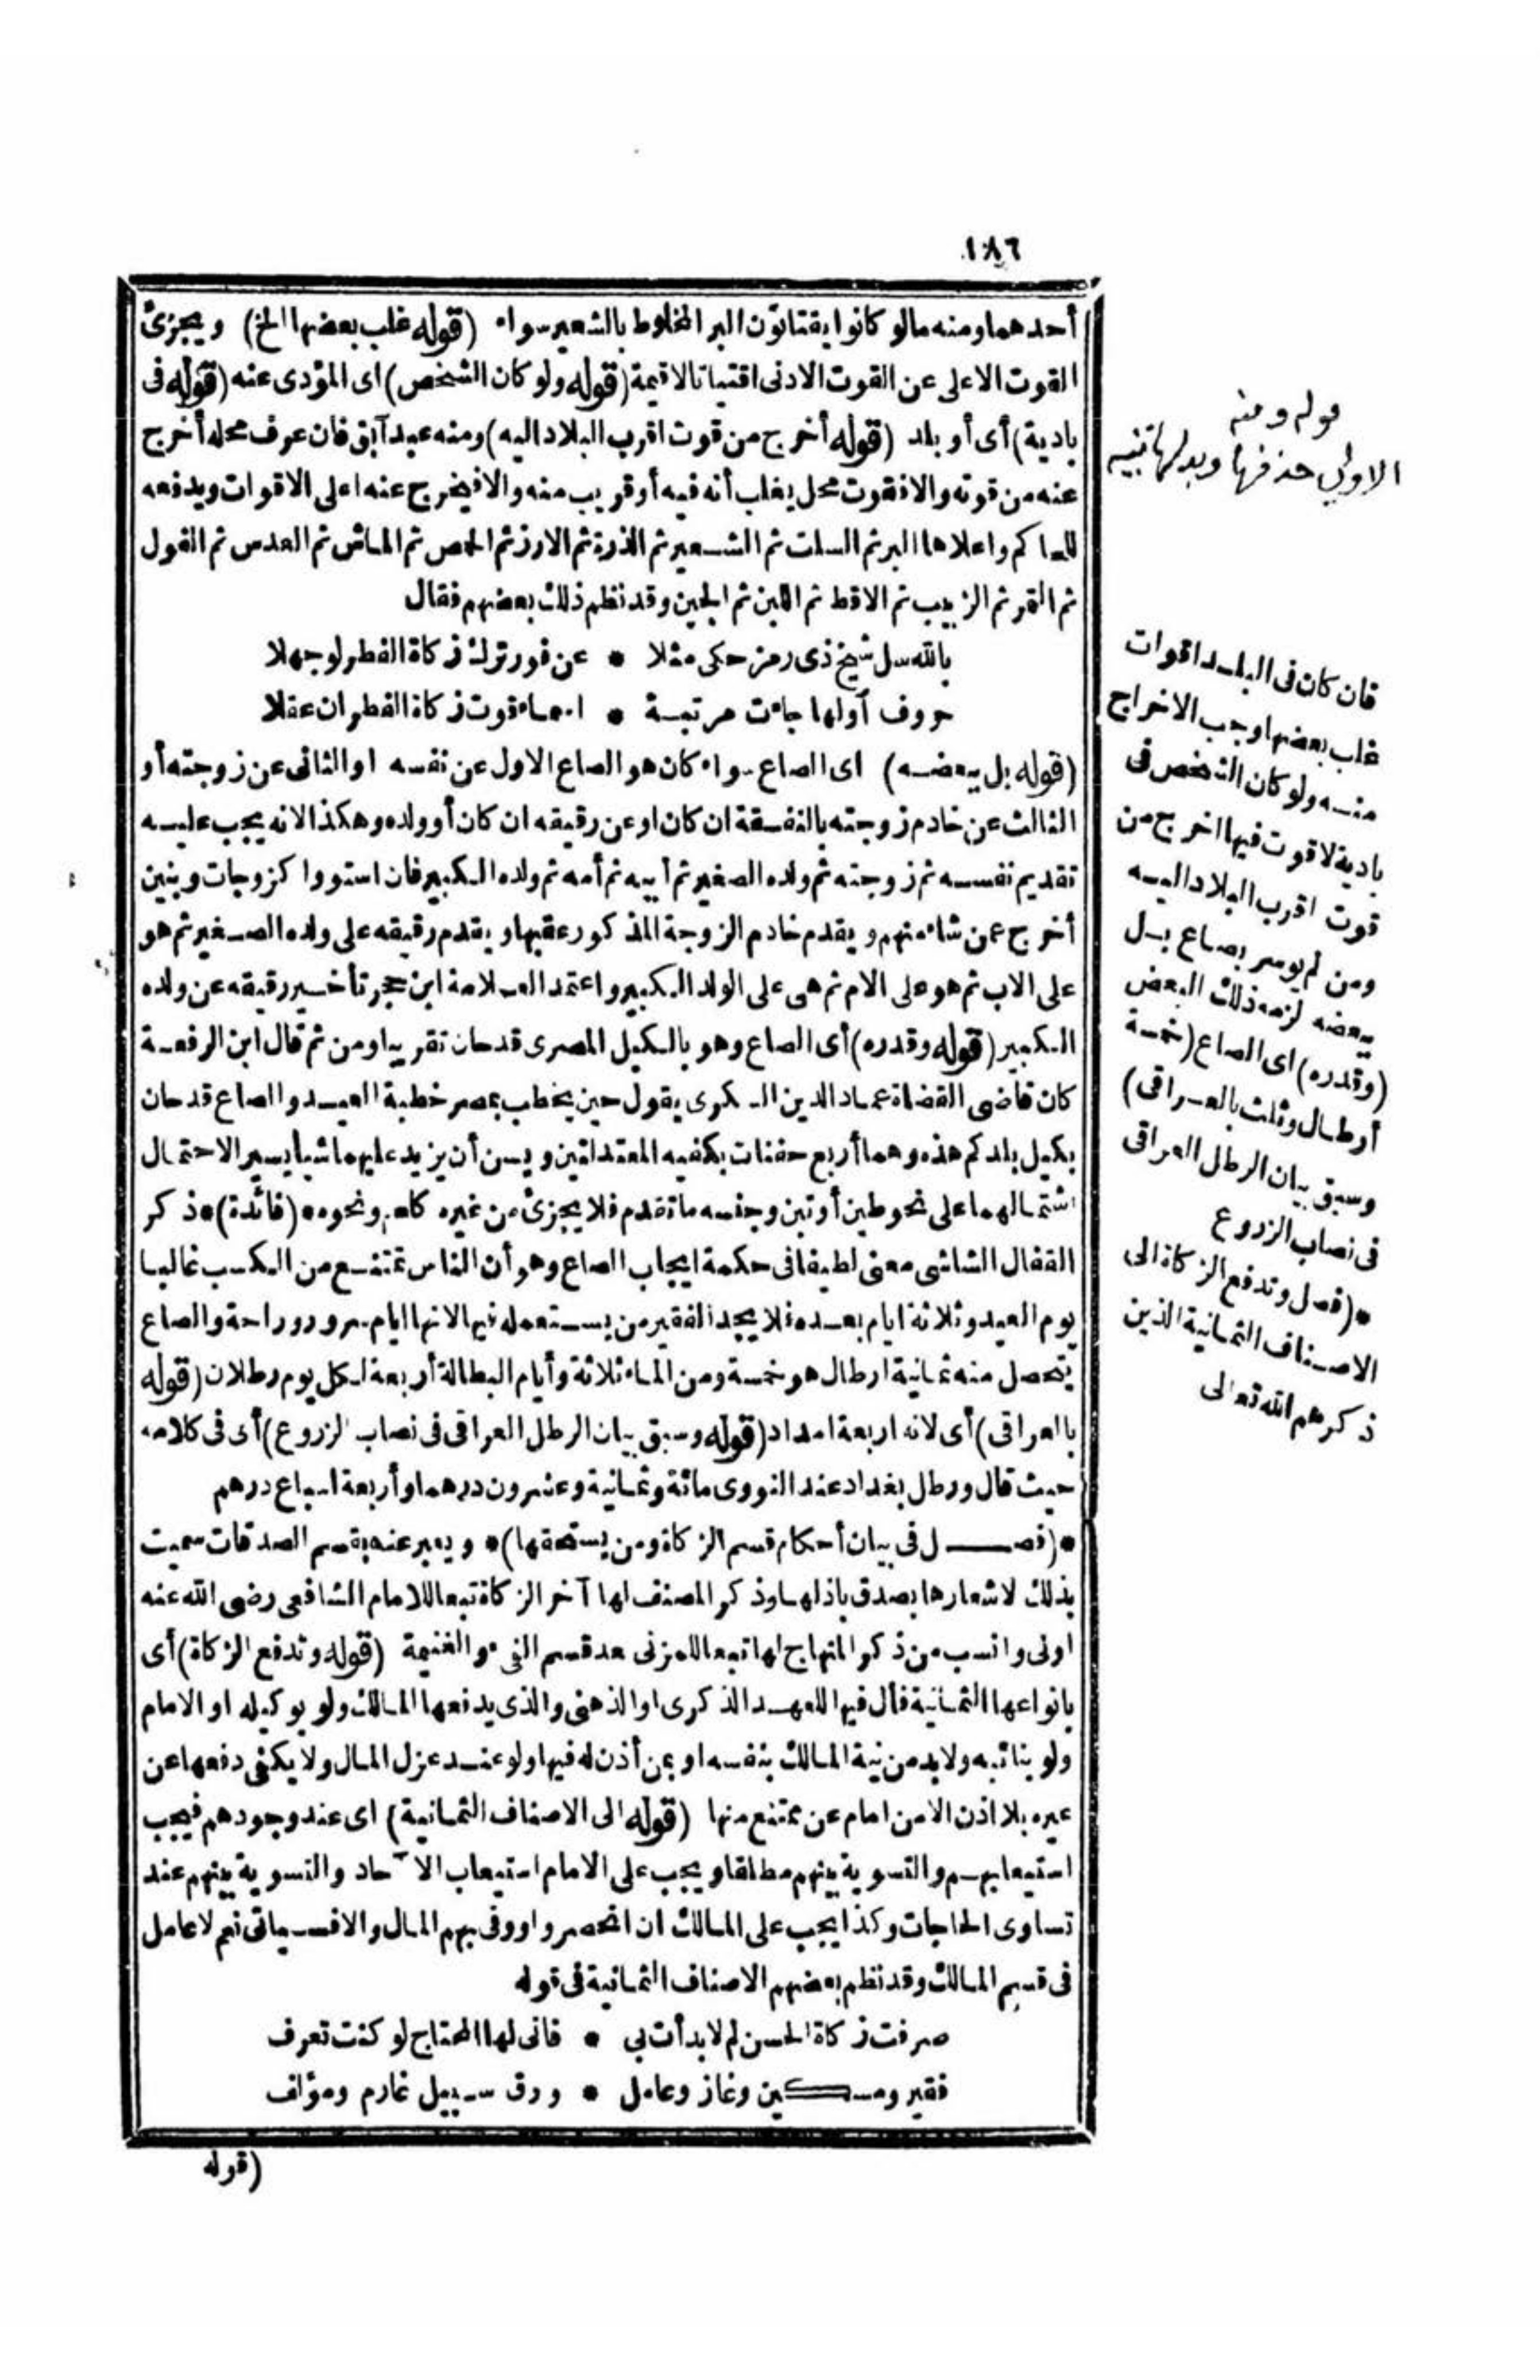 ١٨٦
أحدهما ومنه ما لو كانوا يقتاتون البر المخلوط بالشعير سواء (قوله غلب بعضها الخ) ويجزئ
القوت الاعلى عن القوت الادنى اقتياتا لا قيمة (قوله ولو كان الشخص) اى المؤدى عنه (قوله فى
بادية) أى أو بلد (قوله أخرج من قوت اقرب البلاد اليه) ومنه عبد آبق فان عرف محله أخرج
عنه من قوته والا فقوت محل يغلب أنه فيه أو قريب منه والا فيخرج عنه اعلى الاقوات ويدفعه
للحاكم واعلاها البر ثم السلت ثم الشعير ثم الذرة ثم الارز ثم الحمص ثم الماش ثم العدس ثم الفول
ثم التمر ثم الزبيب ثم الاقط ثم اللبن ثم الجبن وقد نظم ذلك بعضهم فقال
بالله سل شيخ ذى رمز حكى مثلا * عن فور ترك زكاة الفطر لو جهلا
حروف أولها جاءت مرتبة * اسماء قوت زكاة الفطر ان عقلا
(قوله بل ببعضه) اى الصاع سواء كان هو الصاع الاول عن نفسه او الثانى عن زوجته أو
الثالث عن خادم زوجته بالنفقة ان كان او عن رقيقه ان كان أو ولده وهكذا لانه يجب عليه
تقديم نفسه ثم زوجته ثم ولده الصغير ثم أبيه ثم أمه ثم ولده الكبير فان استووا كزوجات وبنين
أخرج عمن شاء منهم ويقدم خادم الزوجة المذكور عقبها ويقدم رقيقه على ولده الصغير ثم هو
على الاب ثم هو على الام ثم هى على الولد الكبير واعتمد العلامة ابن حجر تأخير رقيقه عن ولده
الكبير (قوله وقدره) أى الصاع وهو بالكيل المصرى قدحان تقريبا ومن ثم قال ابن الرفعة
كان قاضى القضاة عماد الدين السكرى يقول حين يخطب بمصر خطبة العيد والصاع قدحان
بكيل بلدكم هذه وهما أربع حفنات بكفيه المعتدلتين ويسن أن يزيد عليهما شيأ يسيرا لاحتمال
اشتمالهما على نحو طين أو تبن وجنسه ما تقدم فلا يجزئ من غيره كلحم ونحوه * (فائدة) * ذكر
القفال الشاشى معنى لطيفا فى حكمة ايجاب الصاع وهو أن الناس تمتنع من الكسب غالبا
يوم العيد وثلاثة ايام بعده فلا يجد الفقير من يستعمله فيها لانها ايام سرور وراحة والصاع
يتحصل منه ثمانية ارطال هو خمسة ومن الماء ثلاثة وأيام البطالة أربعة لكل يوم رطلان (قوله
بالعراقى) أى لانه اربعة امداد (قوله وسبق بيان الرطل العراقى فى نصاب الزروع) أى فى كلامه
حيث قال ورطل بغداد عند النووى مائة وثمانية وعشرون درهما وأربعة اسباع درهم
* (فصل فى بيان أحكام قسم الزكاة ومن يستحقها) * ويعبر عنه بقسم الصدقات سميت
بذلك لاشعارها بصدق باذلها وذكر المصنف لها آخر الزكاة تبعا للامام الشافعى رضى الله عنه
اولى وانسب من ذكر المنهاج لها تبعا للمزنى بعد قسم الفىء والغنيمة (قوله وتدفع الزكاة) أى
بانواعها الثمانية فأل فيها للعهد الذكرى او الذهنى والذى يدفعها المالك ولو بوكيله او الامام
ولو بنائبه ولا بد من نية المالك بنفسه او بمن أذن له فيها ولو عند عزل المال ولا يكفى دفعها عن
غيره بلا اذن الا من امام عن ممتنع منها (قوله الى الاصناف الثمانية) اى عند وجودهم فيجب
استيعابهم والتسوية بينهم مطلقا ويجب على الامام استيعاب الآحاد والتسوية بينهم عند
تساوى الحاجات وكذا يجب على المالك ان انحصروا ووفى بهم المال والا فسيأتى نعم لا عامل
فى قسم المالك وقد نظم بعضهم الاصناف الثمانية فى قوله
صرفت زكاة الحسن لم لا بدأت بى * فانى لها المحتاج لو كنت تعرف
فقير ومسكين وغاز وعامل * ورق سبيل غارم ومؤلف
(قوله
قوله ومنه
الاولى حذفها وبدلها تنبيه
فان كان فى البلد اقوات
غلب بعضها وجب الاخراج
منه ولو كان الشخص فى
بادية لا قوت فيها اخرج من
قوت اقرب البلاد اليه
ومن لم يوسر بصاع بل
ببعضه لزمه ذلك البعض
(وقدره) اى الصاع (خمسة
أرطال وثلث بالعراقى)
وسبق بيان الرطل العراقى
فى نصاب الزروع
* (فصل وتدفع الزكاة الى
الاصناف الثمانية الذين
ذكرهم الله تعالى